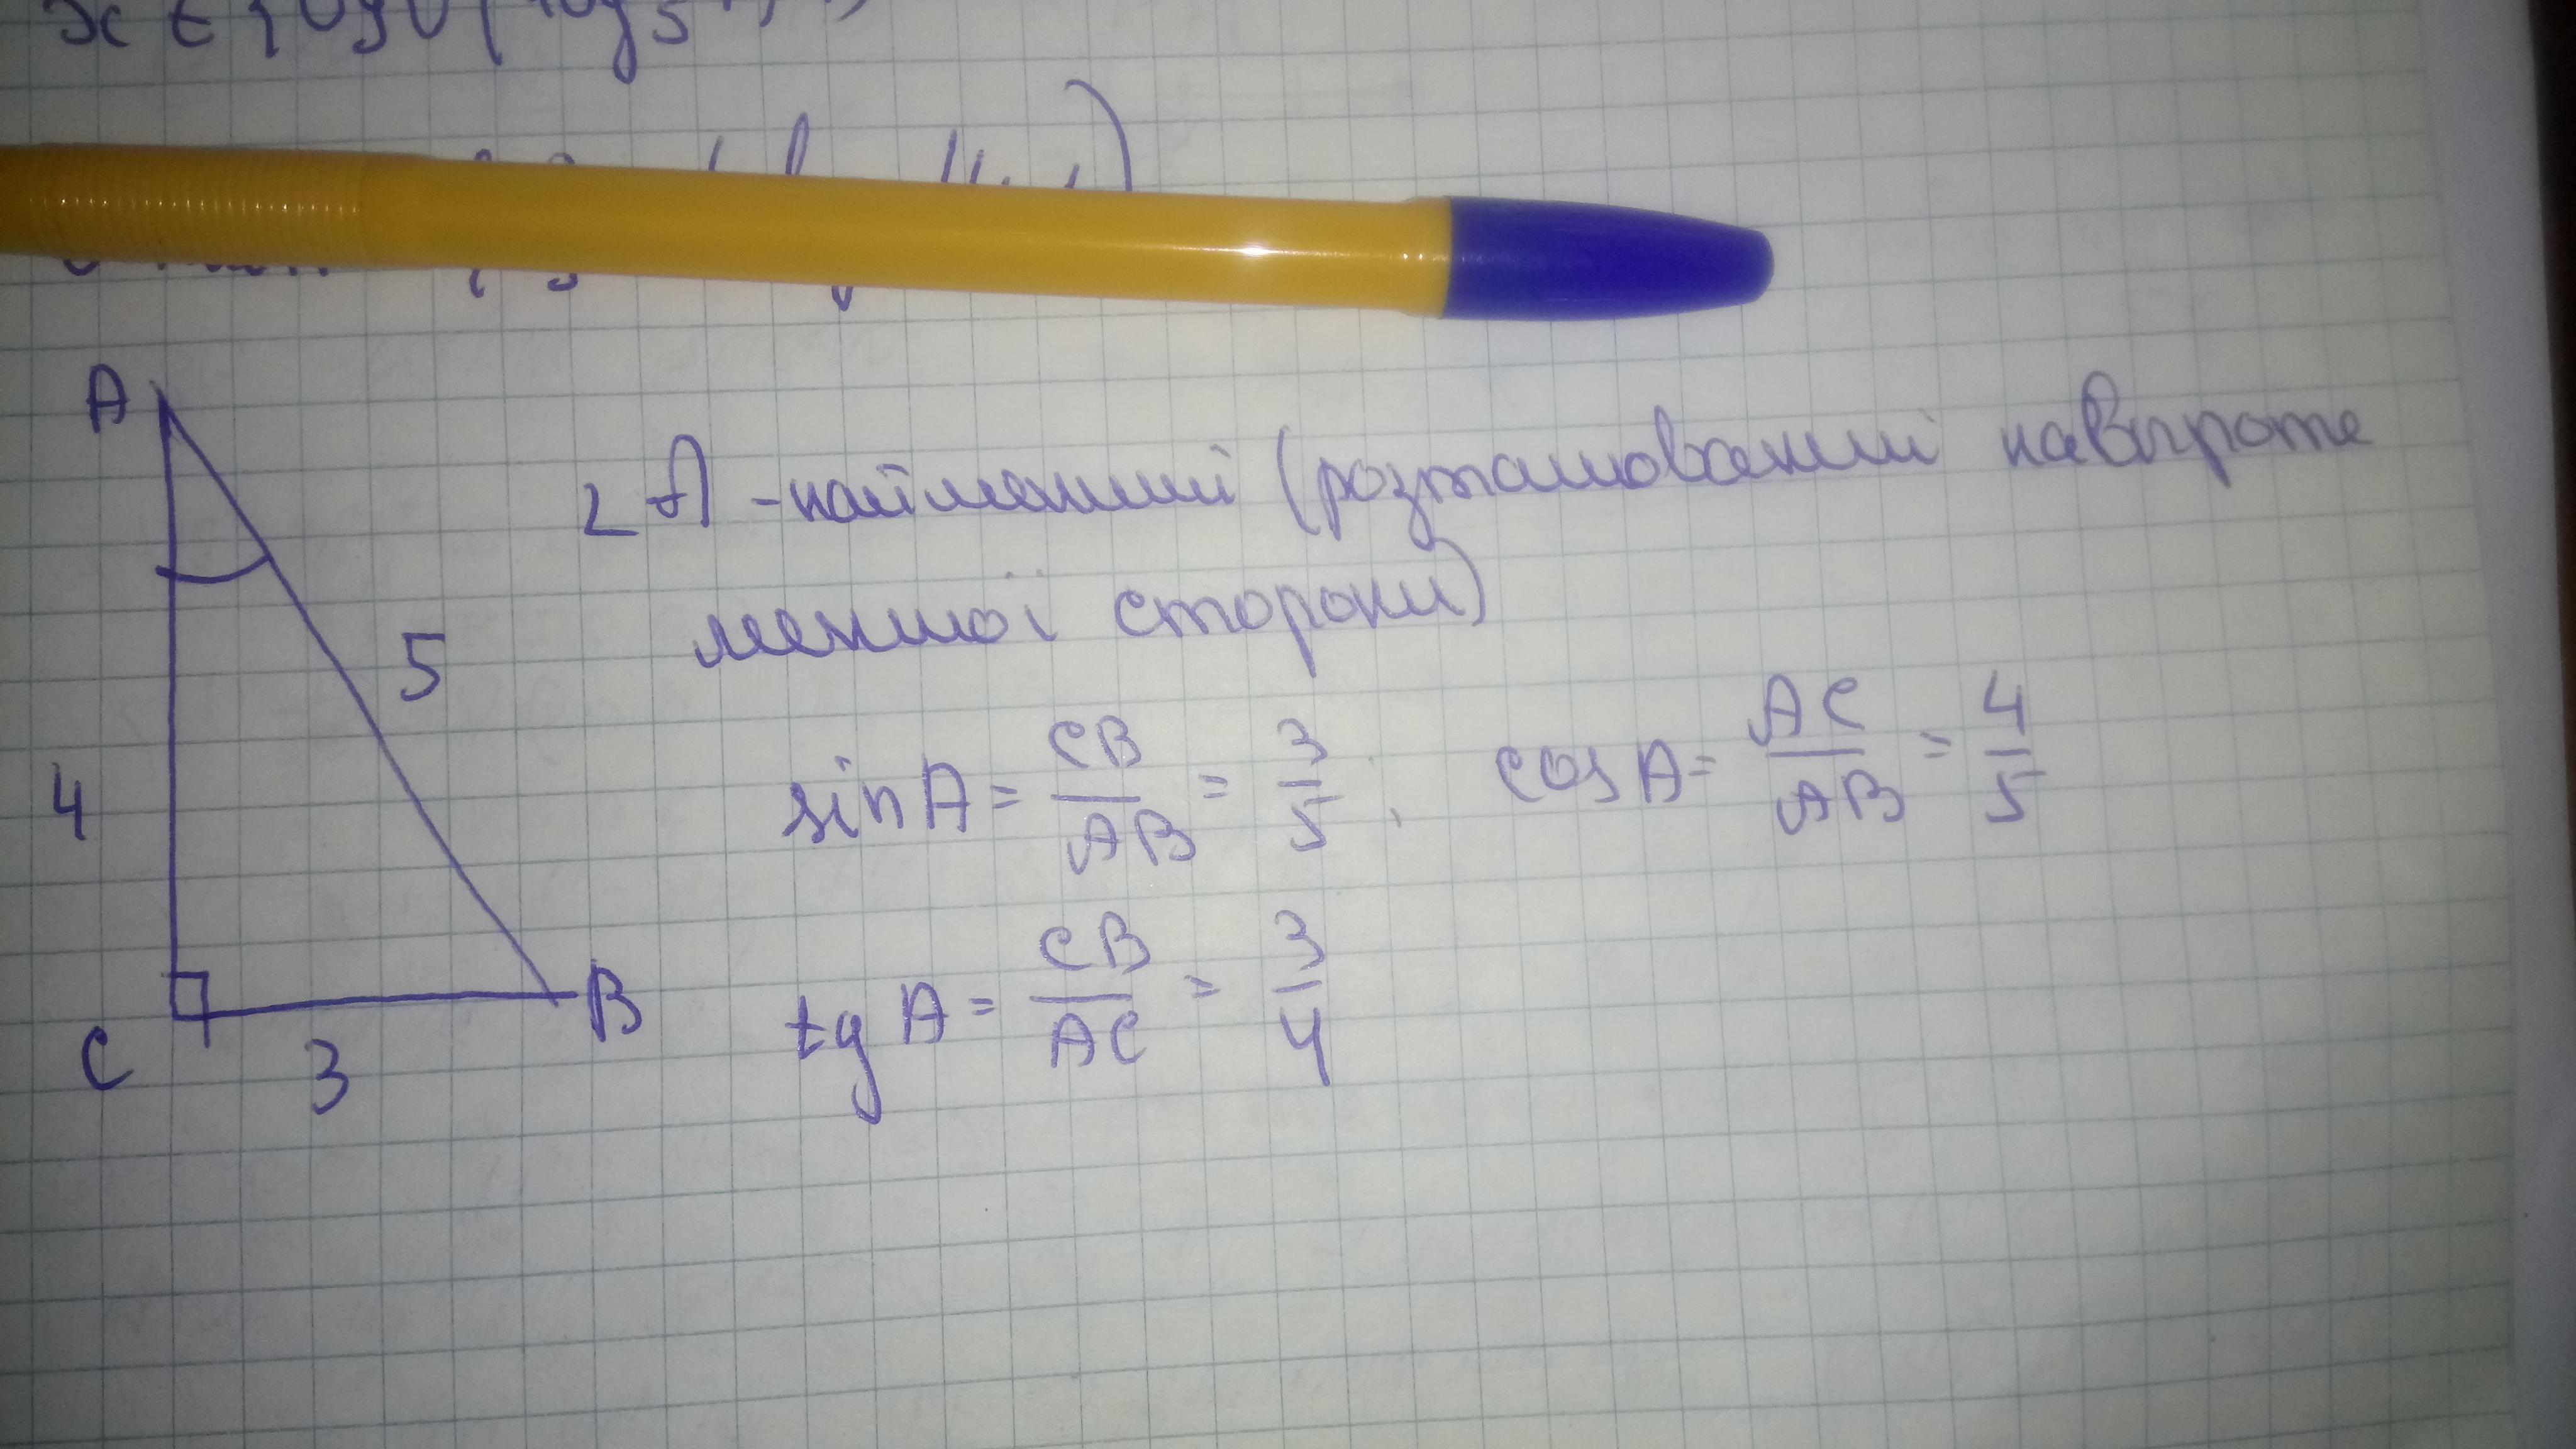 x ∈
A
∠A - найменший (розташований навпроти
меншої сторони)
5
4
sin A = CB/AB = 3/5, cos A = AC/AB = 4/5
tg A = CB/AC = 3/4
C
3
B